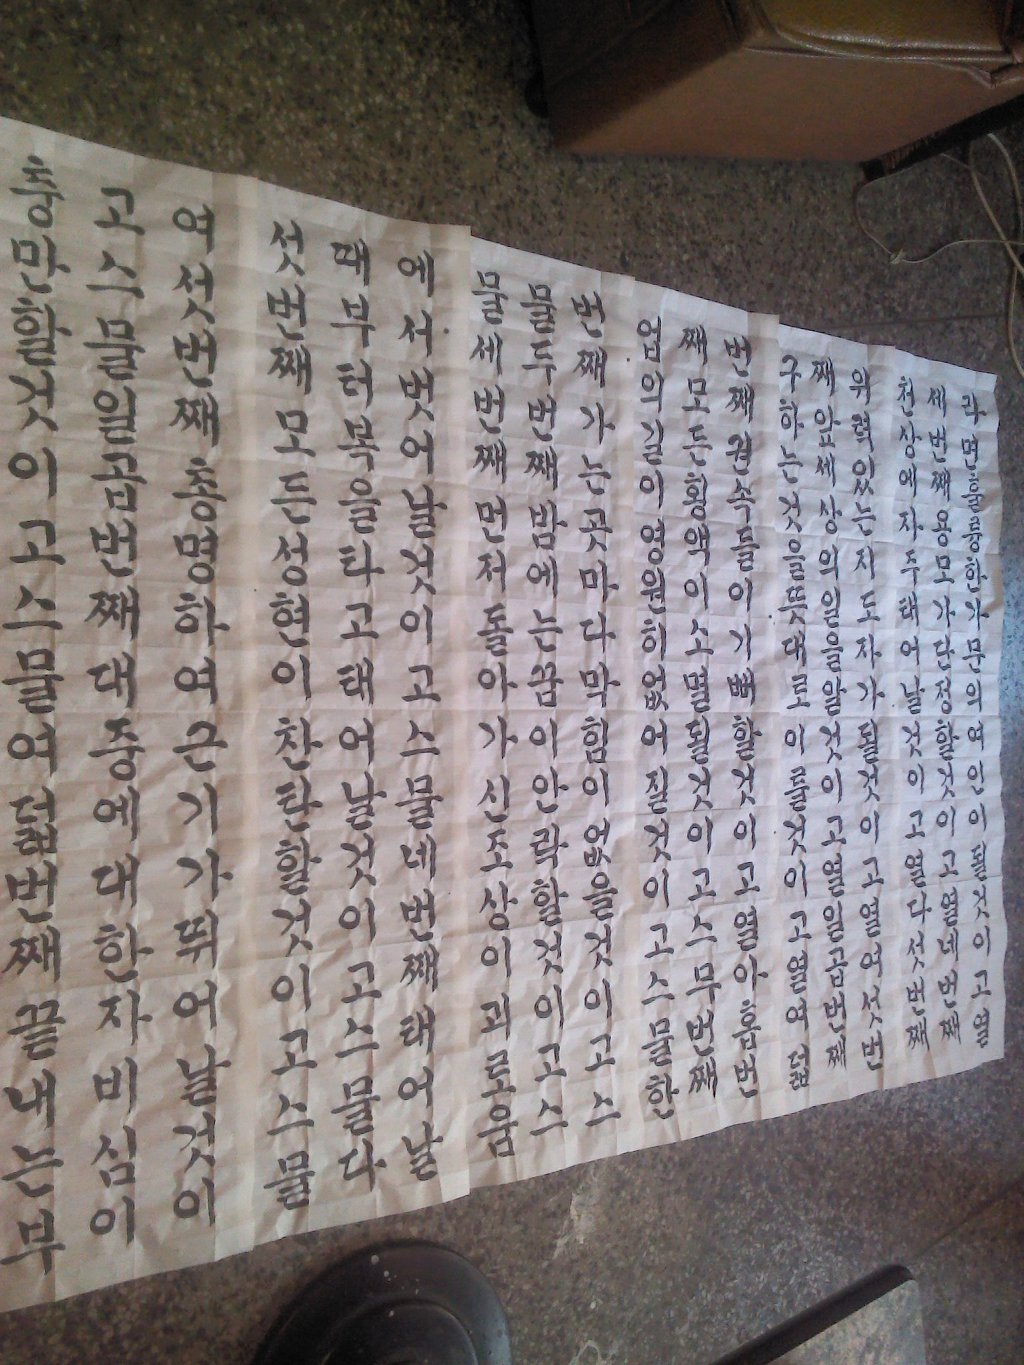 라면훌륭한가문의여인이될것이고열
세번째용모가단정할것이고열네번째
천상에자주태어날것이고열다섯번째
위력있는지도자가될것이고열여섯번
째앞세상의일을알것이고열일곱번째
구하는것을뜻대로이룰것이고열여덟
번째권속들이기뻐할것이고열아홉번
째모든횡액이소멸될것이고스무번째
업의길이영원히없어질것이고스물한
번째가는곳마다막힘이없을것이고스
물두번째밤에는꿈이안락할것이고스
물세번째먼저돌아가신조상이괴로움
에서벗어날것이고스물네번째태어날
때부터복을타고태어날것이고스물다
섯번째모든성현이찬탄할것이고스물
여섯번째총명하여근기가뛰어날것이
고스물일곱번째대중에대한자비심이
충만할것이고스물여덟번째끝내는부